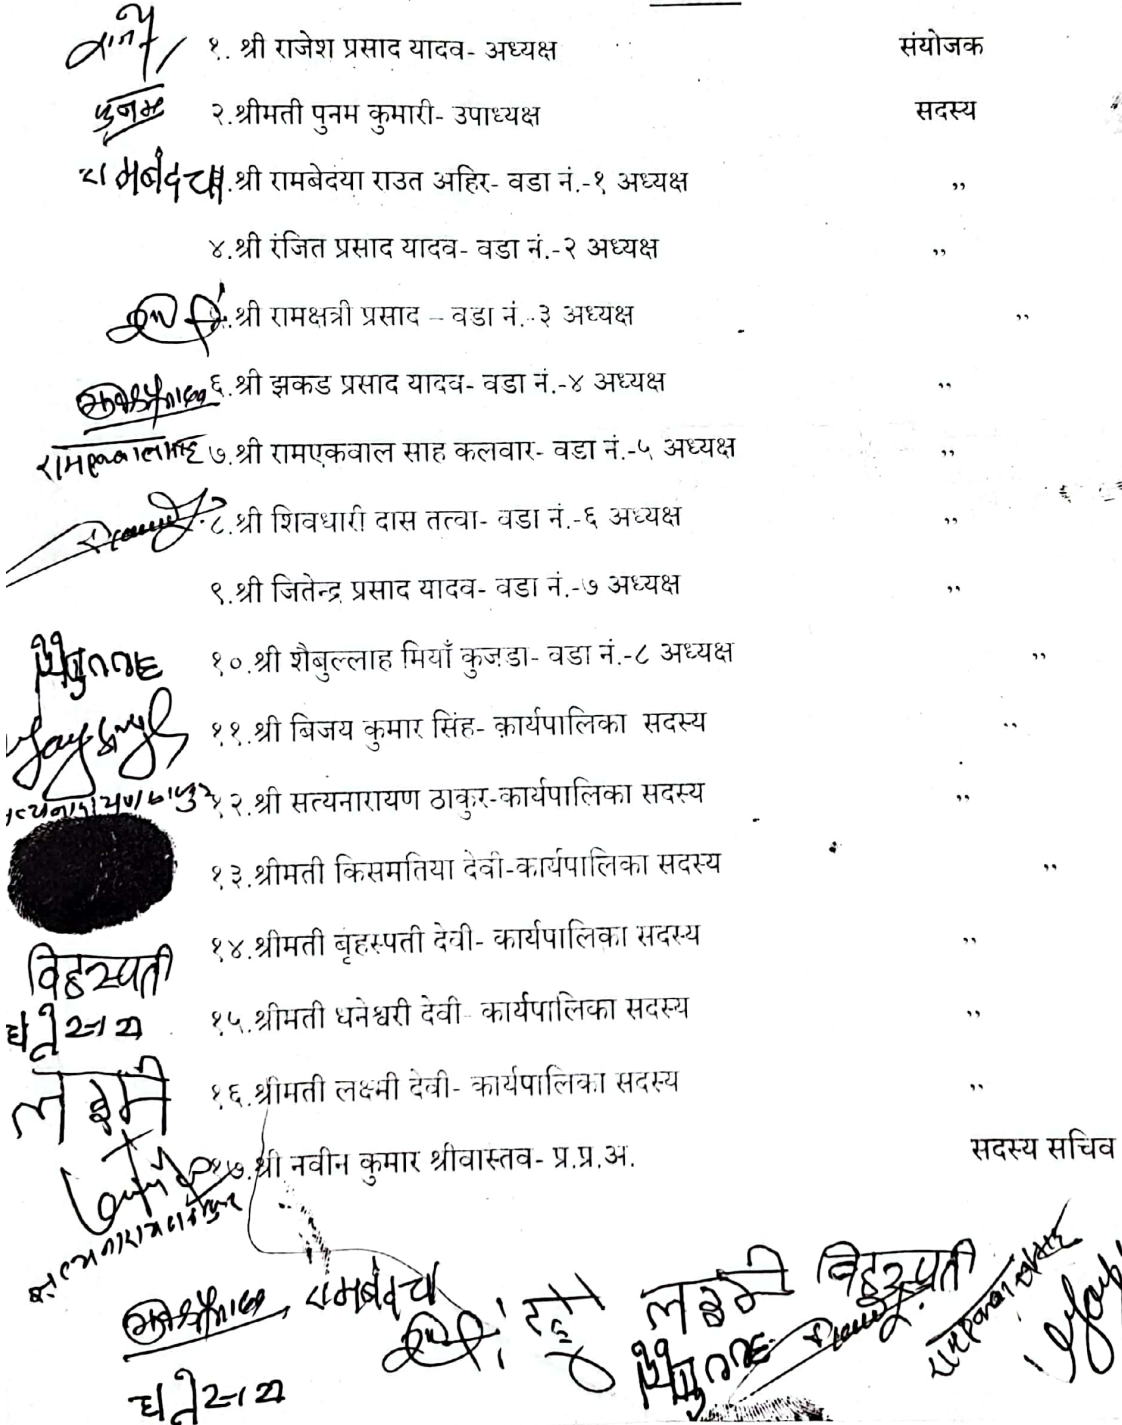 १. श्री राजेश प्रसाद यादव- अध्यक्ष संयोजक
पुनम २.श्रीमती पुनम कुमारी- उपाध्यक्ष सदस्य
श्री रामबेदया राउत अहिर- वडा नं.-१ अध्यक्ष ,,
४.श्री रंजित प्रसाद यादव- वडा नं.-२ अध्यक्ष ,,
श्री रामक्षत्री प्रसाद – वडा नं.-३ अध्यक्ष ,,
६.श्री झकड प्रसाद यादव- वडा नं.-४ अध्यक्ष ,,
७.श्री रामएकवाल साह कलवार- वडा नं.-५ अध्यक्ष ,,
८.श्री शिवधारी दास तत्वा- वडा नं.-६ अध्यक्ष ,,
९.श्री जितेन्द्र प्रसाद यादव- वडा नं.-७ अध्यक्ष ,,
१०.श्री शैबुल्लाह मियाँ कुजडा- वडा नं.-८ अध्यक्ष ,,
११.श्री बिजय कुमार सिंह- कार्यपालिका सदस्य ,,
१२.श्री सत्यनारायण ठाकुर-कार्यपालिका सदस्य ,,
१३.श्रीमती किसमतिया देवी-कार्यपालिका सदस्य ,,
१४.श्रीमती बृहस्पती देवी- कार्यपालिका सदस्य ,,
विहस्पती
१५.श्रीमती धनेश्वरी देवी- कार्यपालिका सदस्य ,,
१६.श्रीमती लक्ष्मी देवी- कार्यपालिका सदस्य ,,
१७.श्री नवीन कुमार श्रीवास्तव- प्र.प्र.अ. सदस्य सचिव
सत्यनारायण ठाकुर
विहस्पती